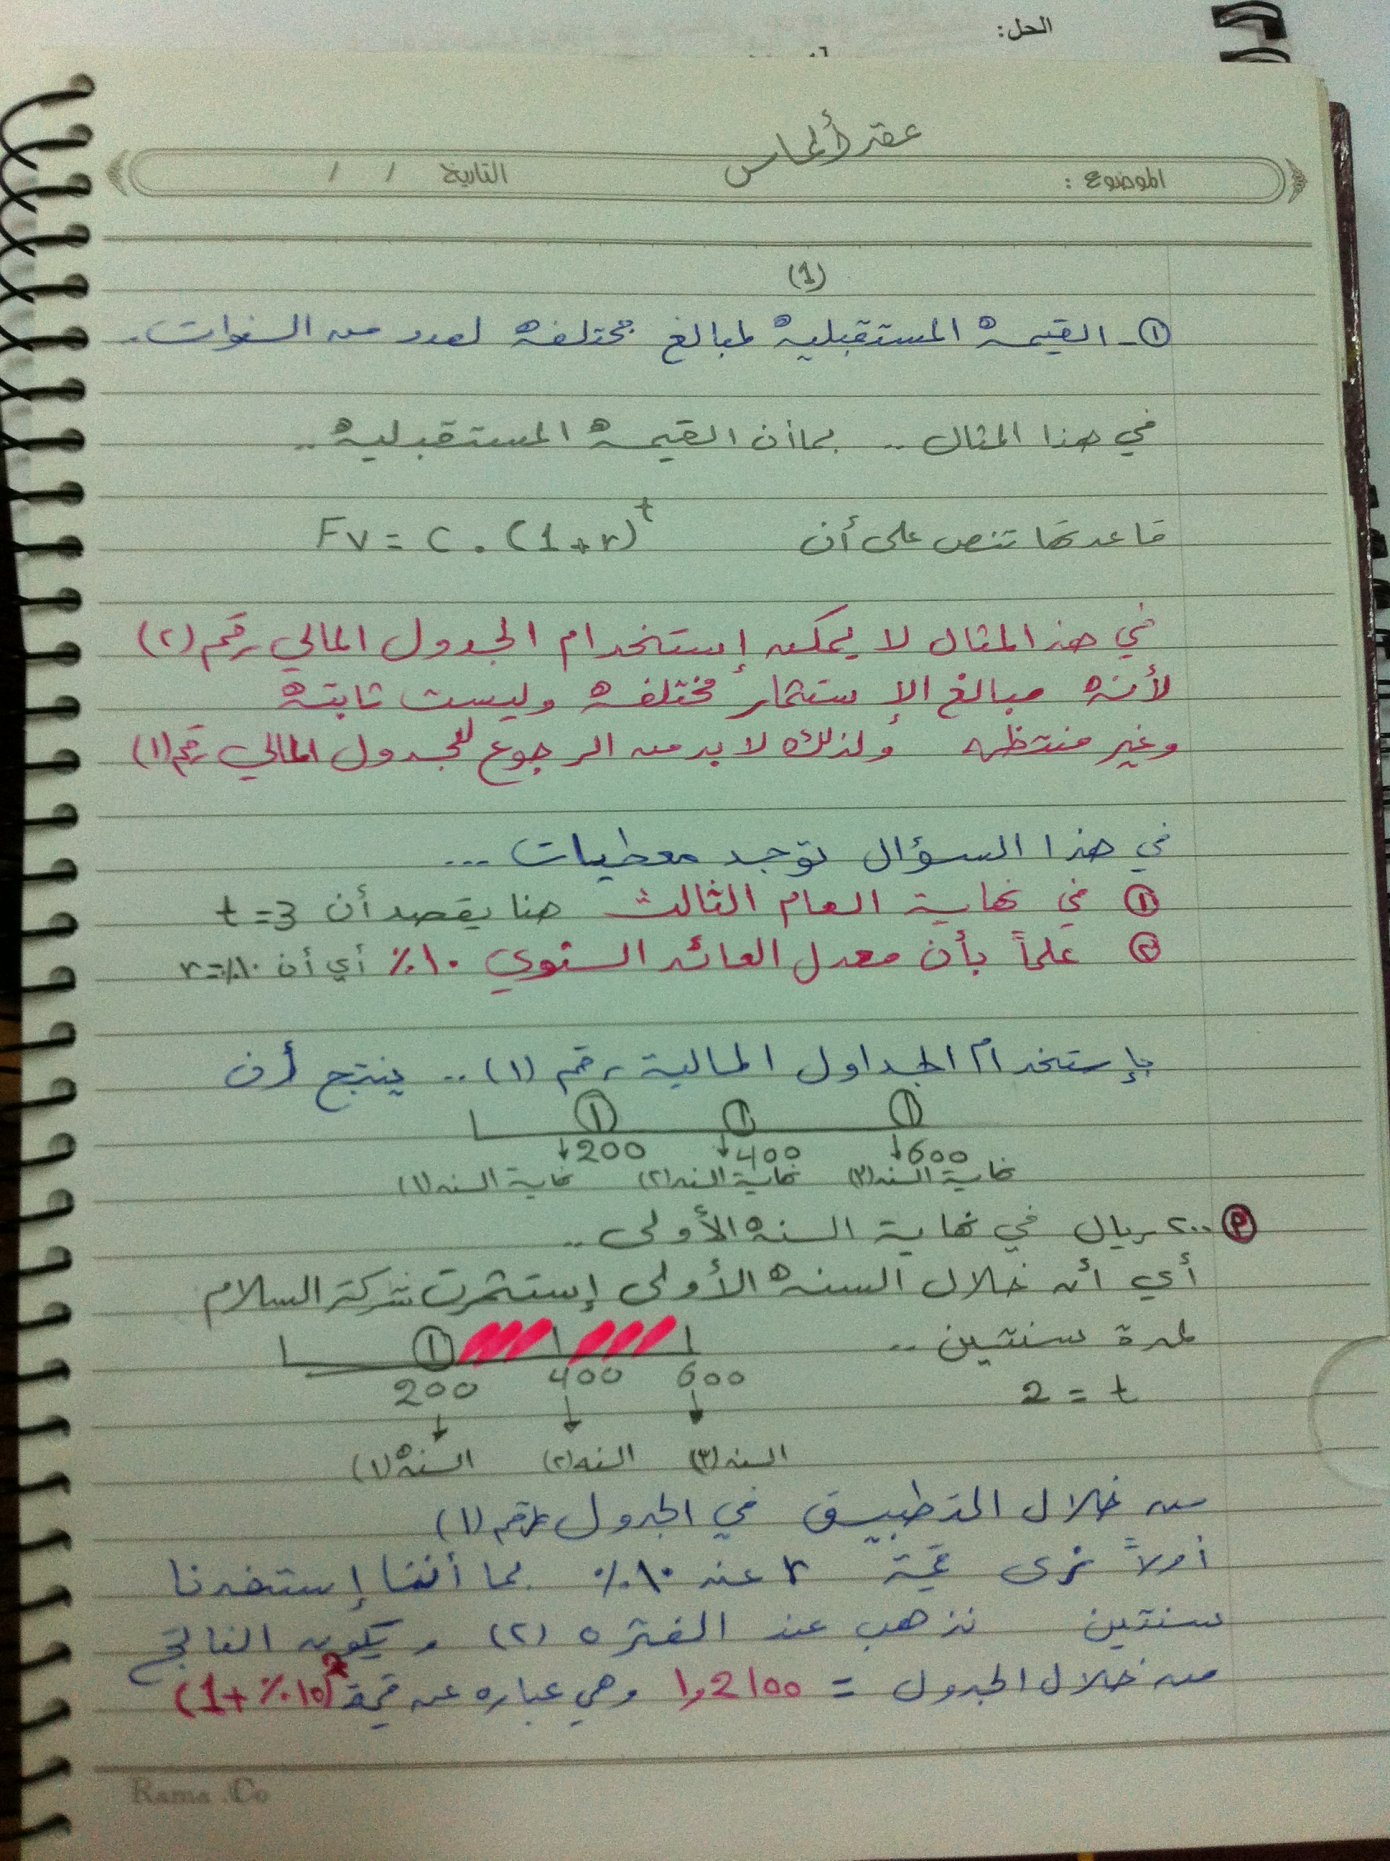 الحل:
عقد ألماس
الموضوع : التاريخ / /
(1)
①- القيمة المستقبلية لمبالغ مختلفة لعدد من السنوات.
في هذا المثال .. بما أن القيمة المستقبلية ..
قاعدتها تنص على أن Fv = C . (1+r)^t
في هذ المثال لا يمكن إستخدام الجدول المالي رقم (٢)
لأنه مبالغ الإستثمار مختلفة وليست ثابتة
وغير منتظمه ولذلك لابد من الرجوع للجدول المالي رقم (١)
في هذا السؤال توجد معطيات ...
① في نهاية العام الثالث هنا يقصد أن t=3
② علماً بأن معدل العائد السنوي ١٠٪ أي أن r=٪١٠
بإستخدام الجداول المالية رقم (١) .. ينتج أن
① ① ①
↓200 ↓400 ↓600
نهاية السنه (١) نهاية السنه (٢) نهاية السنه (٣)
٢٠٠ ريال في نهاية السنه الأولى ..
أي أنه خلال السنه الأولى إستثمرت شركة السلام
لمدة سنتين ..
①
200 400 600
2 = t
السنه (١) السنه (٢) السنه (٣)
من خلال التطبيق في الجدول رقم (١)
أولاً نرى قيمة r عند ١٠٪ بما أننا إستخدمنا
سنتين نذهب عند الفتره (٢) ويكون الناتج
من خلال الجدول = 1,2100 وهي عباره عن قيمة (1+٪10)²
Rama .Co